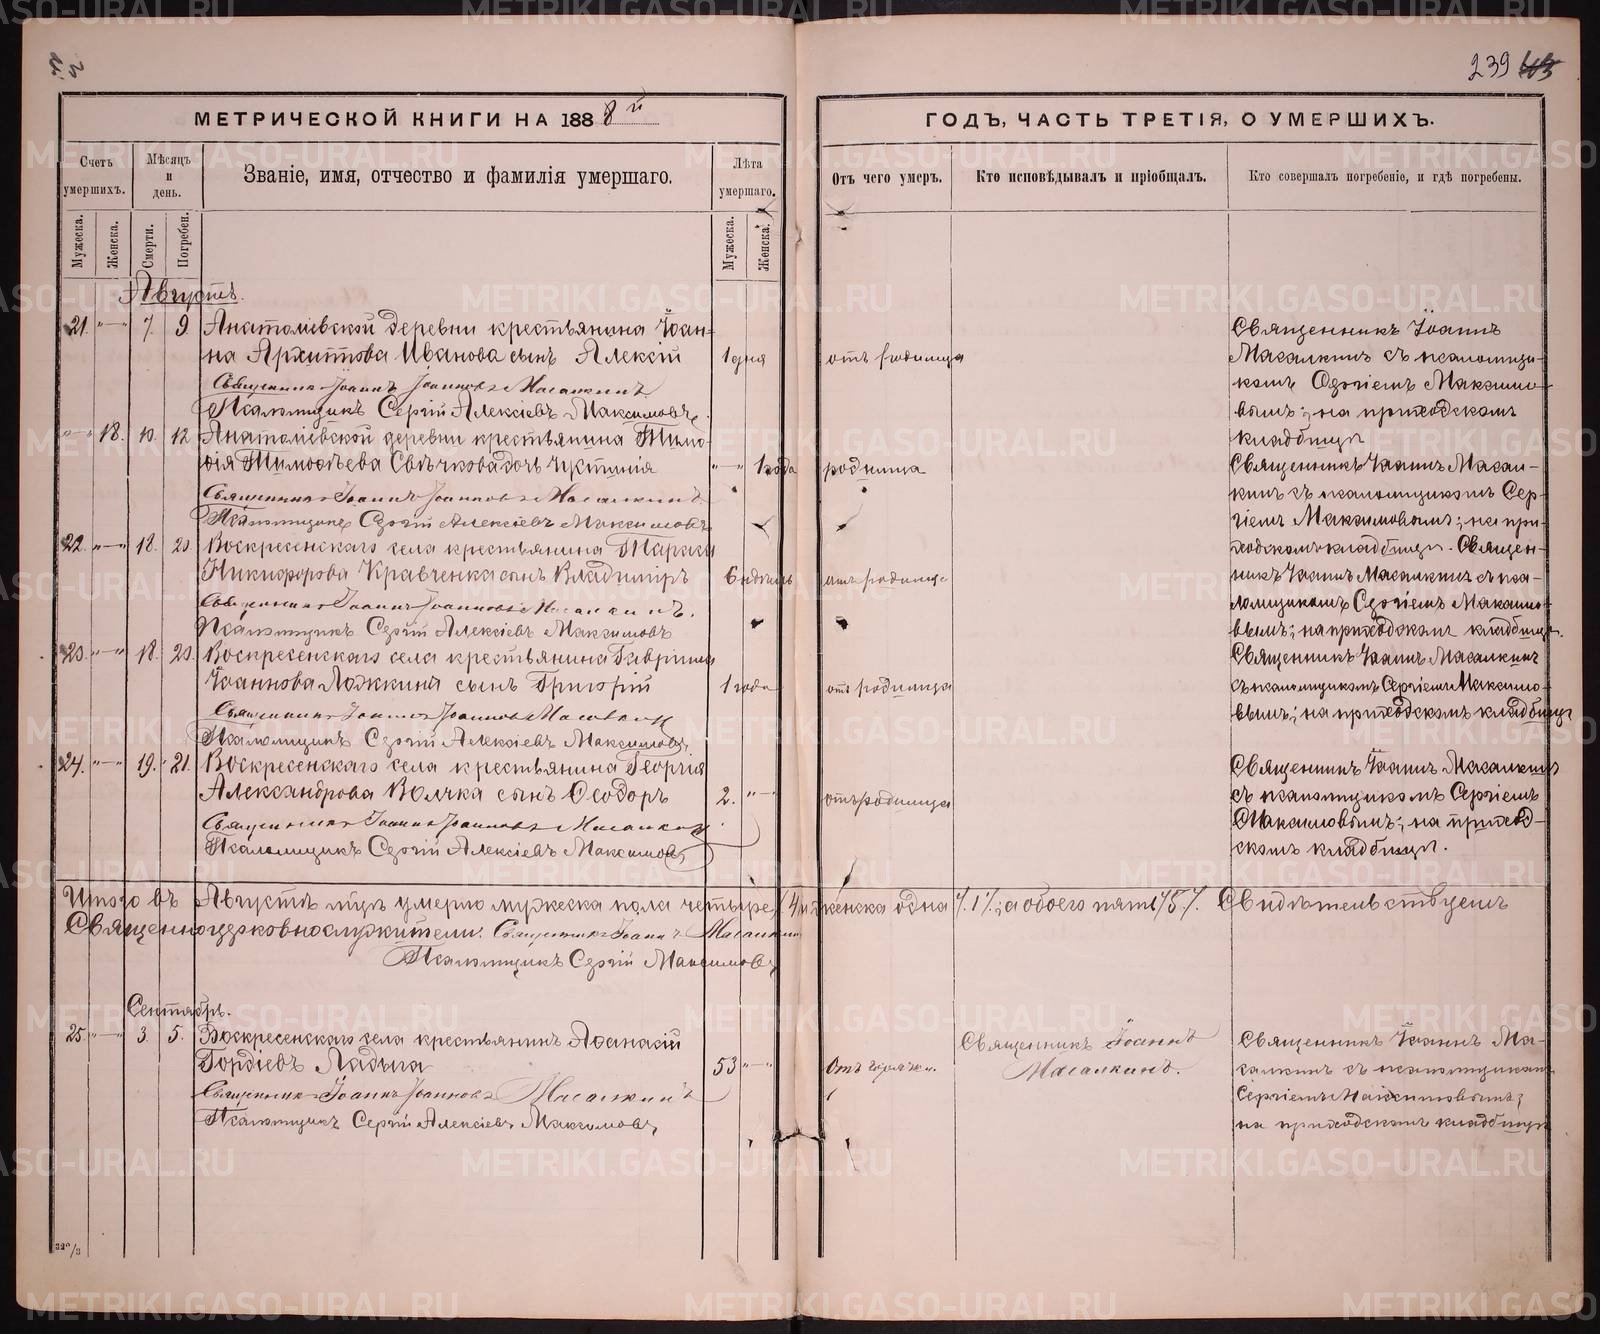 239 103
МЕТРИЧЕСКОЙ КНИГИ НА 1888й
ГОДЪ, ЧАСТЬ ТРЕТІЯ, О УМЕРШИХЪ.
Счетъ умершихъ.
Мѣсяцъ и день.
Званіе, имя, отчество и фамилія умершаго.
Лѣта умершаго.
Отъ чего умеръ.
Кто исповѣдывалъ и пріобщалъ.
Кто совершалъ погребеніе, и гдѣ погребены.
Мужеска.
Женска.
Смерти.
Погребен.
Мужеска.
Женска.
Августъ.
21. "—" 7. 9. Анатоліевской деревни крестьянина Іоан-
на Архипова Иванова сынъ Алексій 1 дня отъ родимца
Священникъ Іоаннъ Іоанновъ Масалкинъ
Псаломщикъ Сергій Алексіевъ Максимовъ.
Священникъ Іоаннъ
Масалкинъ съ псаломщи-
комъ Сергіемъ Максимо-
вымъ; на приходскомъ
кладбищѣ
"—" 18. 10. 12 Анатоліевской деревни крестьянина Тимо-
ѳія Тимоѳѣева Свѣчкова дочь Іустинія "—" 1 года родимца
Священникъ Іоаннъ Іоанновъ Масалкинъ
Псаломщикъ Сергій Алексіевъ Максимовъ
Священникъ Іоаннъ Масал-
кинъ съ псаломщикомъ Сер-
гіемъ Максимовымъ; на при-
ходскомъ кладбищѣ.
22. "—" 18. 20. Воскресенскаго села крестьянина Тараса
Никифорова Кравченка сынъ Владиміръ 6 недѣль отъ родимца
Священникъ Іоаннъ Іоанновъ Масалкинъ.
Псаломщикъ Сергій Алексіевъ Максимовъ
Священ-
никъ Іоаннъ Масалкинъ съ пса-
ломщикомъ Сергіемъ Максимо-
вымъ; на приходскомъ кладбищѣ.
23. "—" 18. 20. Воскресенскаго села крестьянина Гавріила
Іоаннова Ложкина сынъ Григорій 1 года отъ родимца
Священникъ Іоаннъ Іоанновъ Масалкинъ
Псаломщикъ Сергій Алексіевъ Максимовъ
Священникъ Іоаннъ Масалкинъ
съ псаломщикомъ Сергіемъ Максимо-
вымъ; на приходскомъ кладбищѣ
24. "—" 19. 21. Воскресенскаго села крестьянина Георгія
Александрова Волчка сынъ Ѳеодоръ 2. "—" отъ родимца
Священникъ Іоаннъ Іоанновъ Масалкинъ
Псаломщикъ Сергій Алексіевъ Максимовъ
Священникъ Іоаннъ Масалкинъ
съ псаломщикомъ Сергіемъ
Максимовымъ; на приход-
скомъ кладбищѣ.
Итого въ Августѣ мѣсяцѣ умерло мужеска пола четыре /4/ и женска одна /1/; а обоего пять /5/. Свидѣтельствуемъ
Священноцерковнослужители: Священникъ Іоаннъ Масалкинъ
Псаломщикъ Сергій Максимовъ
Сентябрь.
25. "—" 3. 5. Воскресенскаго села крестьянинъ Аѳанасій
Гордіевъ Ладыга 53 "—" Отъ горячки.
Священникъ Іоаннъ Іоанновъ Масалкинъ
Псаломщикъ Сергій Алексіевъ Максимовъ
Священникъ Іоаннъ
Масалкинъ.
Священникъ Іоаннъ Ма-
салкинъ съ псаломщикомъ
Сергіемъ Максимовымъ;
на приходскомъ кладбищѣ
METRIKI.GASO-URAL.RU